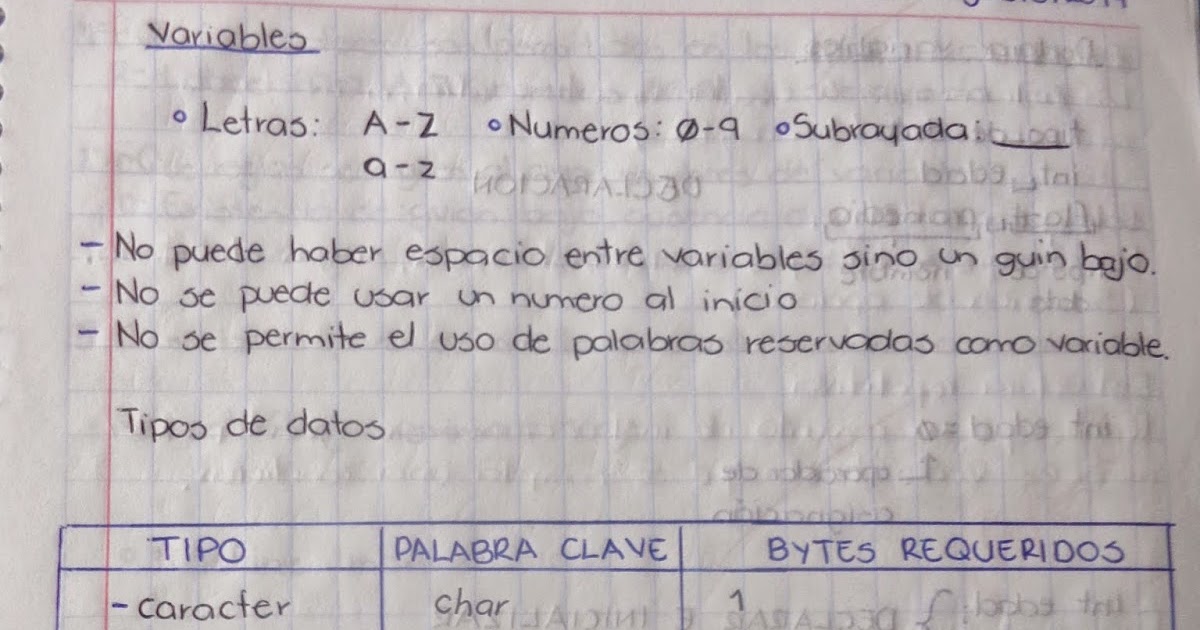 Variables
• Letras: A-Z • Numeros: 0-9 • Subrayada: __
a-z
- No puede haber espacio entre variables sino un guin bajo.
- No se puede usar un numero al inicio
- No se permite el uso de palabras reservadas como variable.
Tipos de datos
TIPO PALABRA CLAVE BYTES REQUERIDOS
- caracter char 1